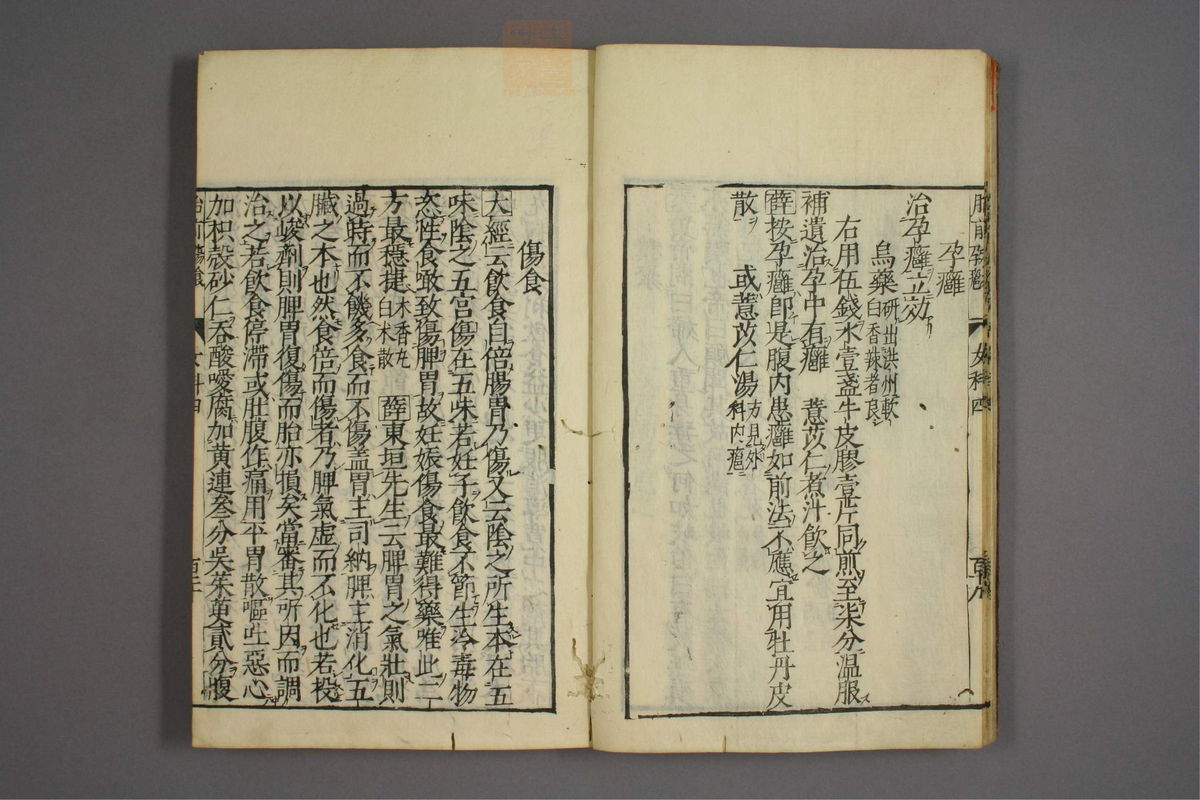 胎前孕癰
女科四
孕癰
治孕癰立效
烏藥 研出洪州軟
白香辣者良
右用伍錢水壹盞牛皮膠壹片同煎至柒分温服
補遺治孕中有癰 薏苡仁煮汁飲之
薛按孕癰即是腹内患癰如前法不應宜用牡丹皮
散 或薏苡仁湯 方見外
科内癰
傷食
大經云飲食自倍腸胃乃傷又云陰之所生本在五
味陰之五宫傷在五味若妊子飲食不節生冷毒物
恣性食噉致傷脾胃故妊娠傷食最難得藥唯此二
方最穩捷 木香丸
白朮散 薛東垣先生云脾胃之氣壯則
過時而不饑多食而不傷盖胃主司納脾主消化五
臟之本也然食倍而傷者乃脾氣虚而不化也若投
以峻劑則脾胃復傷而胎亦損矣當審其所因而調
治之若飲食停滯或肚腹作痛用平胃散嘔吐惡心
加枳殼砂仁吞酸噯腐加黄連叁分吳茱萸貳分腹
胎前傷食
女科四